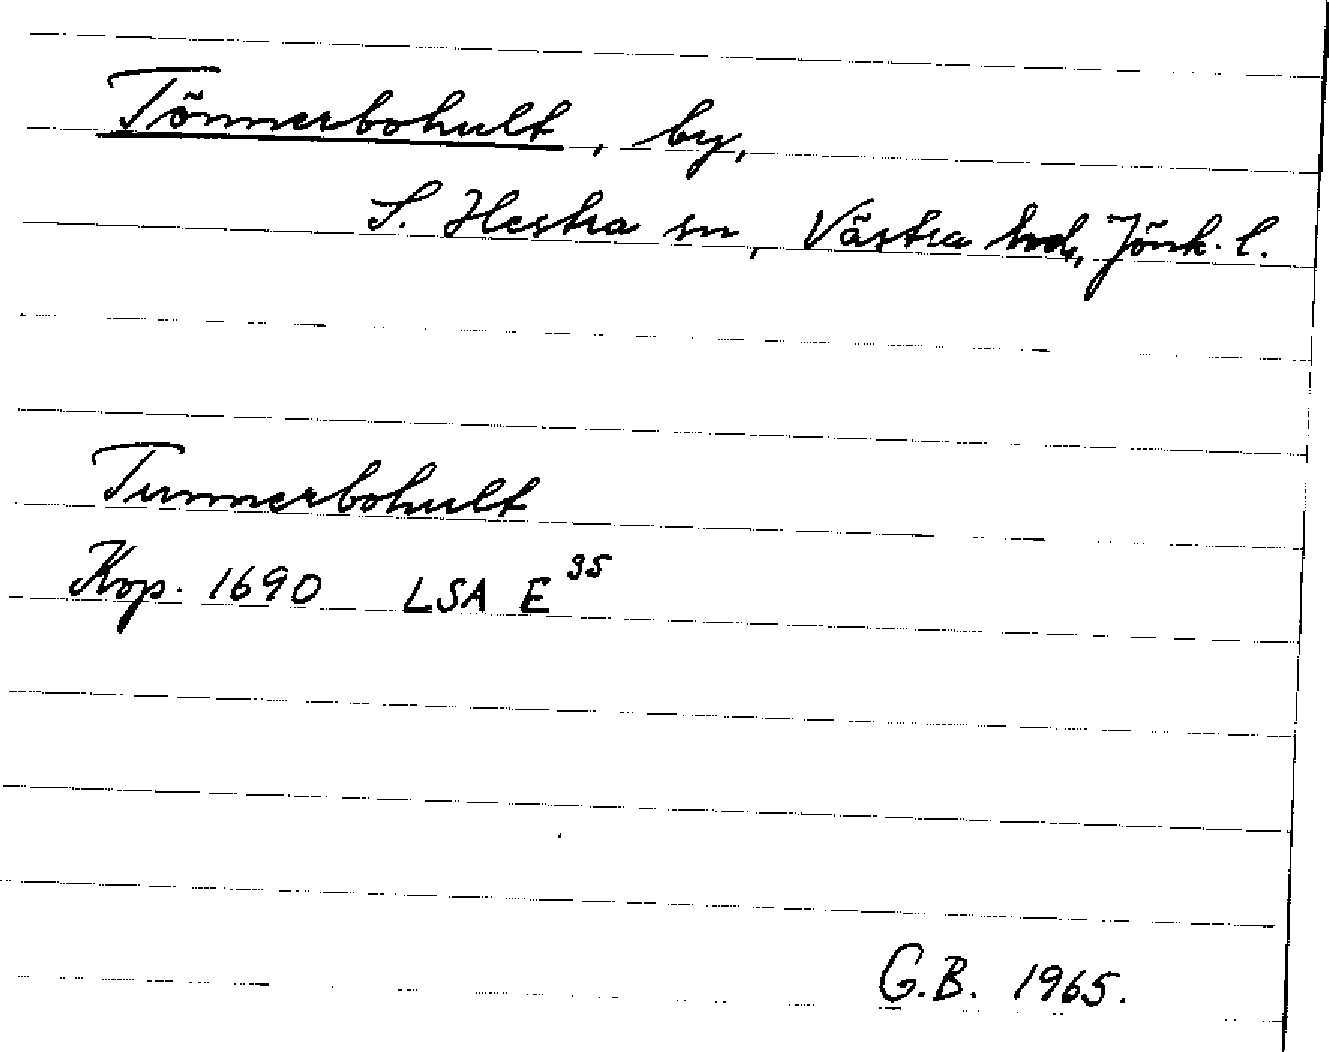 Tönnerbohult, by,
S. Hestra sn, Västra hd, Jönk. l.
Tunnerbohult
Kop. 1690 LSA E 35
G.B. 1965.